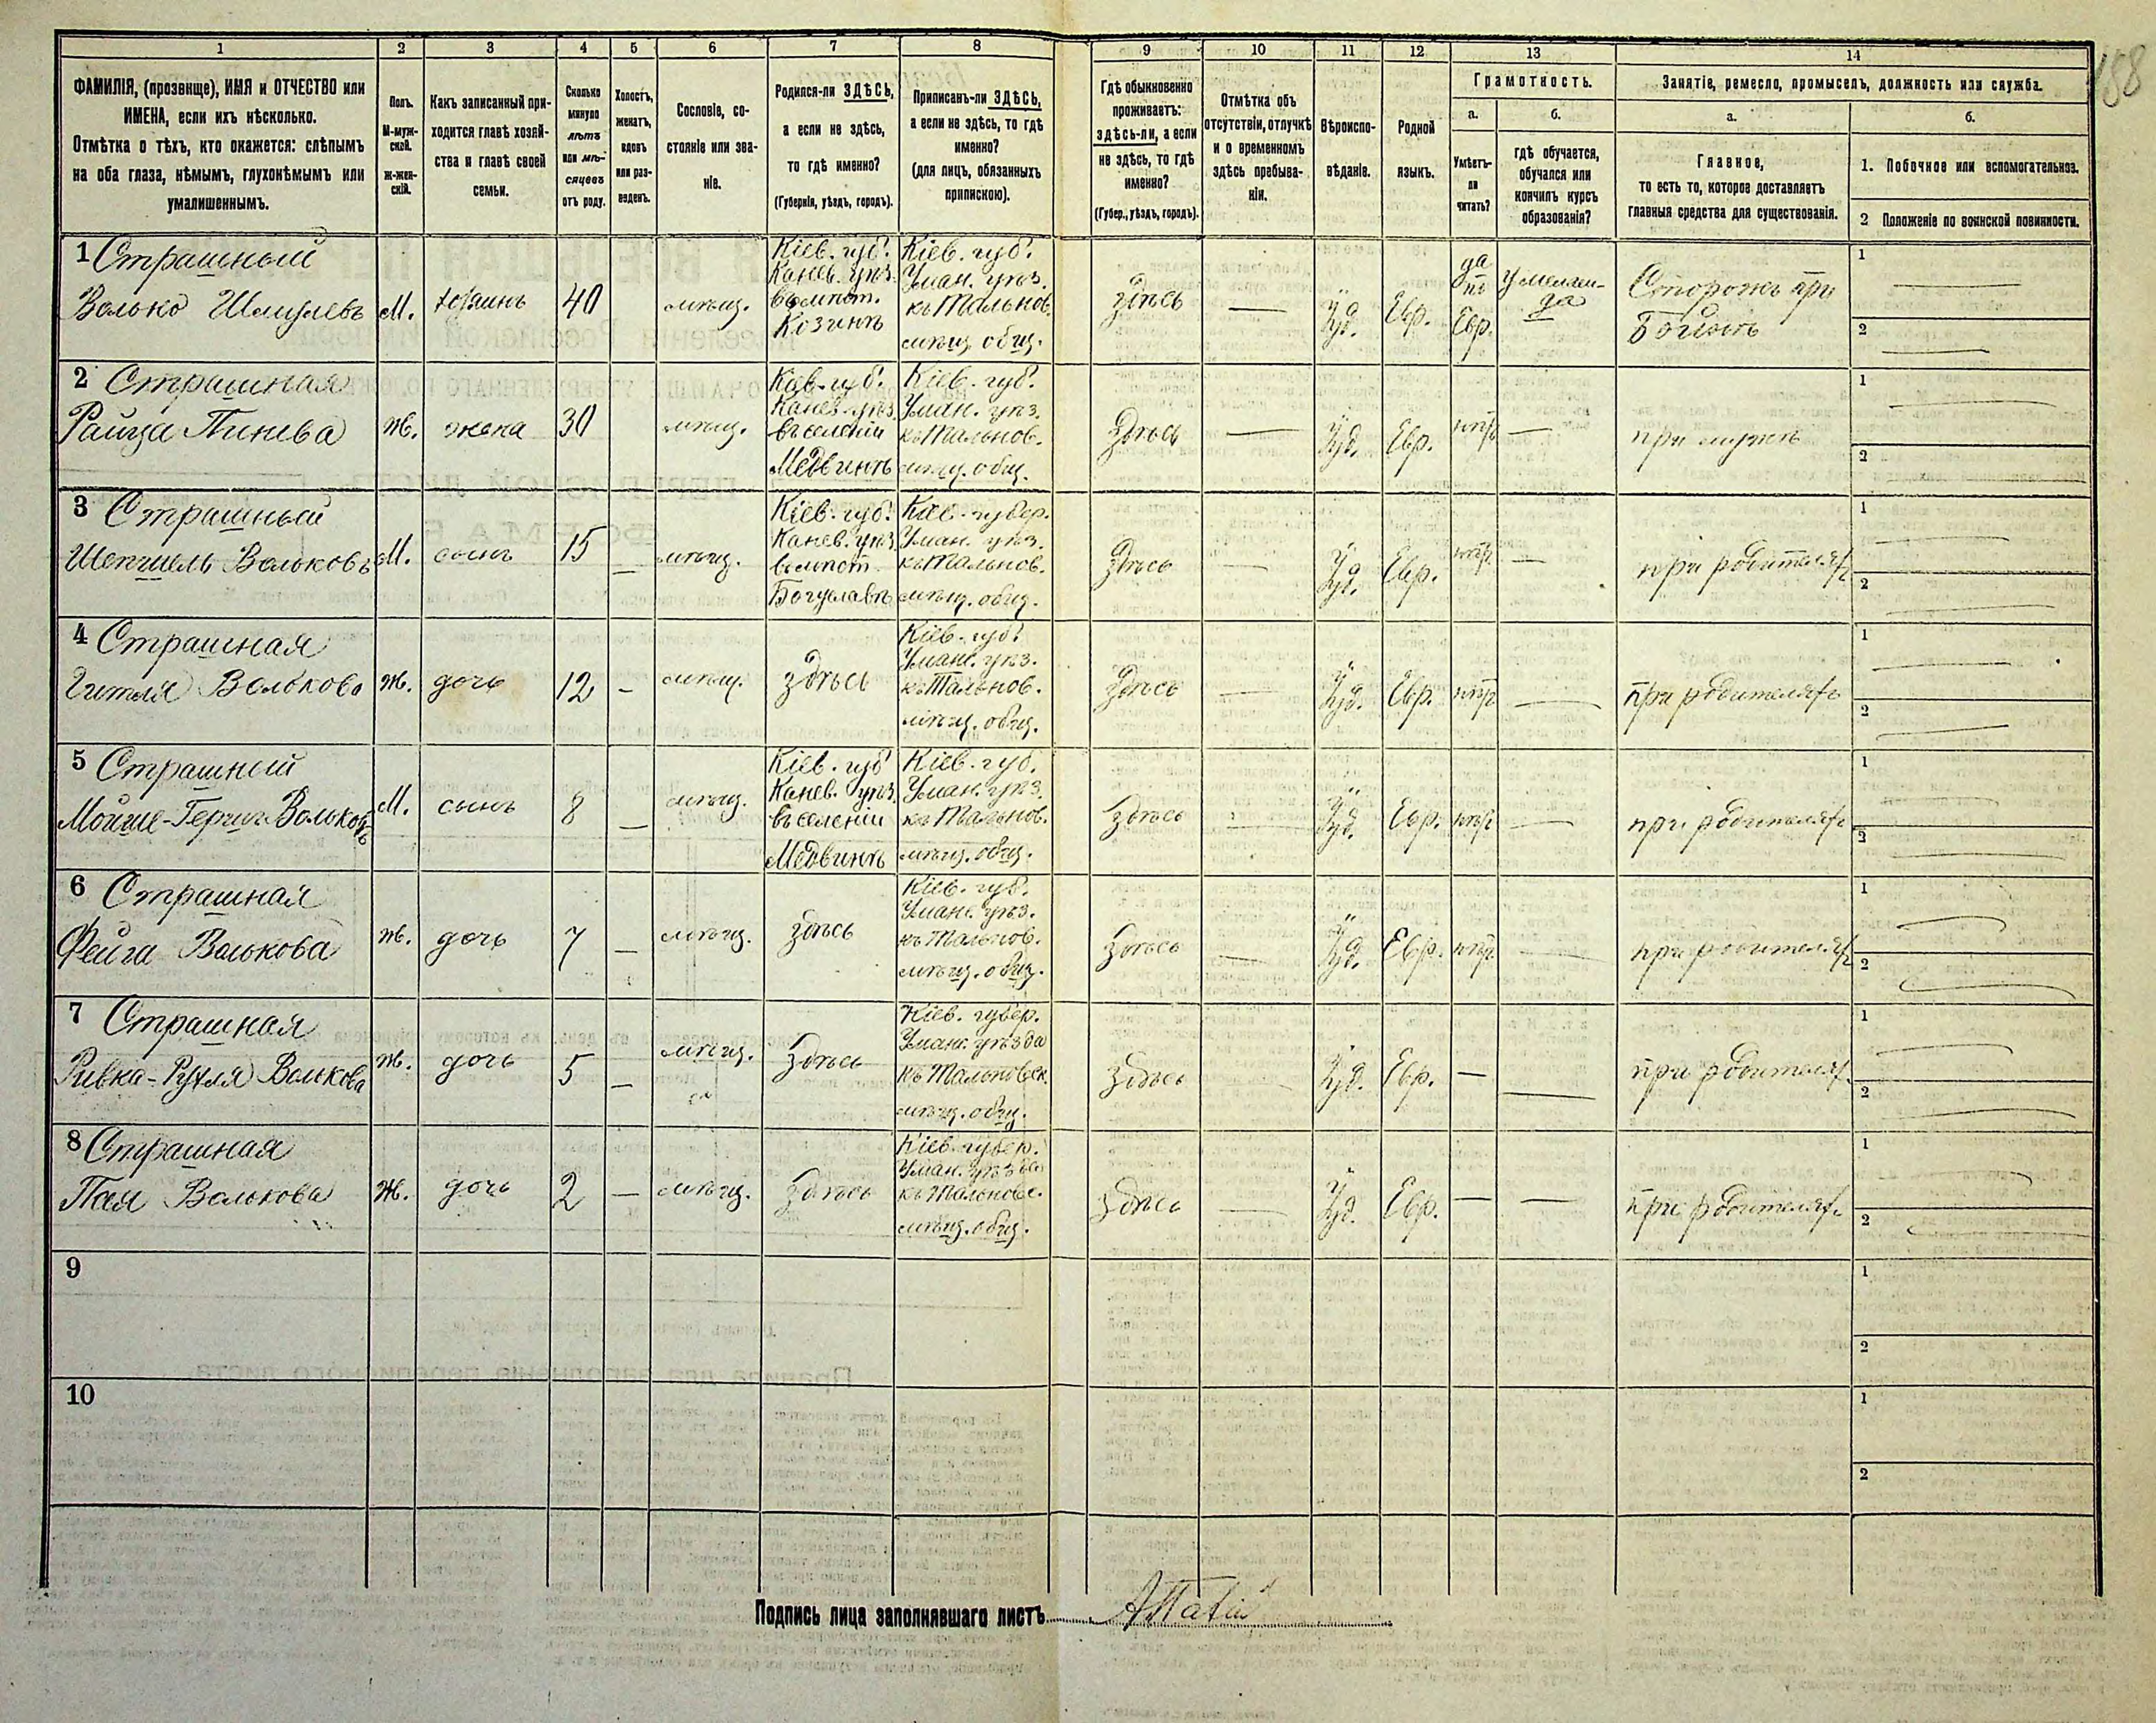 158
1 2 3 4 5 6 7 8 9 10 11 12 13 14
ФАМИЛІЯ, (прозвище), ИМЯ и ОТЧЕСТВО или
ИМЕНА, если ихъ нѣсколько.
Отмѣтка о тѣхъ, кто окажется: слѣпымъ
на оба глаза, нѣмымъ, глухонѣмымъ или
умалишеннымъ.
Полъ.
М-муж-
ской.
Ж-жен-
скій.
Какъ записанный при-
ходится главѣ хозяй-
ства и главѣ своей
семьи.
Сколько
минуло
лѣтъ
или мѣ-
сяцевъ
отъ роду.
Холостъ,
женатъ,
вдовъ
или раз-
веденъ.
Сословіе, со-
стояніе или зва-
ніе.
Родился-ли ЗДѢСЬ,
а если не здѣсь,
то гдѣ именно?
(Губернія, уѣздъ, городъ).
Приписанъ-ли ЗДѢСЬ,
а если не здѣсь, то гдѣ
именно?
(для лицъ, обязанныхъ
припискою).
Гдѣ обыкновенно
проживаетъ:
здѣсь-ли, а если
не здѣсь, то гдѣ
именно?
(Губер., уѣздъ, городъ).
Отмѣтка объ
отсутствіи, отлучкѣ
и о временномъ
здѣсь пребыва-
ніи.
Вѣроиспо-
вѣданіе.
Родной
языкъ.
Грамотность.
а.
Умѣетъ-
ли
читать?
б.
гдѣ обучается,
обучался или
кончилъ курсъ
образованія?
Занятіе, ремесло, промыселъ, должность или служба.
а.
Главное,
то есть то, которое доставляетъ
главныя средства для существованія.
б.
1. Побочное или вспомогательное.
2 Положеніе по воинской повинности.
1 Страшный
Волько Шмулевъ
М.
хозяинъ
40
мѣщ.
Кіев. губ.
Канев. уѣз.
въ мѣст.
Козинѣ
Кіев. губ.
Уман. уѣз.
къ Тальнов.
мѣщ. общ.
здѣсь
—
Іуд.
Евр.
да
по
Евр.
У мелам-
да
Сторожъ при
1
2
2 Страшная
Райза Пинева
Ж.
жена
30
мѣщ.
Кіев. губ.
Канев. уѣз.
въ селеніи
Медвинѣ
Кіев. губ.
Уман. уѣз.
къ Тальнов.
мѣщ. общ.
здѣсь
—
Іуд.
Евр.
нѣтъ
—
при мужѣ
1
2
3 Страшный
Вольковъ
М.
сынъ
15
—
мѣщ.
Кіев. губ.
Канев. уѣз.
въ мѣст.
Богуславѣ
Кіев. губер.
Уман. уѣз.
къ Тальнов.
мѣщ. общ.
здѣсь
—
Іуд.
Евр.
нѣтъ
—
при родителяхъ
1
2
4 Страшная
Гитля Волькова
Ж.
дочь
12
—
мѣщ.
здѣсь
Кіев. губ.
Уман. уѣз.
къ Тальнов.
мѣщ. общ.
здѣсь
—
Іуд.
Евр.
нѣтъ
—
при родителяхъ
1
2
5 Страшный
Мойше-Герш Вольковъ
М.
сынъ
8
—
мѣщ.
Кіев. губ.
Канев. уѣз.
въ селеніи
Медвинѣ
Кіев. губ.
Уман. уѣз.
къ Тальнов.
мѣщ. общ.
здѣсь
Іуд.
Евр.
нѣтъ
—
при родителяхъ
1
2
6 Страшная
Фейга Волькова
Ж.
дочь
7
—
мѣщ.
здѣсь
Кіев. губ.
Уман. уѣз.
къ Тальнов.
мѣщ. общ.
здѣсь
—
Іуд.
Евр.
нѣтъ
—
при родителяхъ
1
2
7 Страшная
Ривка-Рухля Волькова
Ж.
дочь
5
—
мѣщ.
здѣсь
Кіев. губер.
Уман. уѣзда
къ Тальновск.
мѣщ. общ.
здѣсь
Іуд.
Евр.
—
—
при родителях.
1
2
8 Страшная
Волькова
Ж.
дочь
2
—
мѣщ.
здѣсь
Кіев. губер.
Уман. уѣзда
къ Тальновс.
мѣщ. общ.
здѣсь
—
Іуд.
Евр.
—
—
при родителях.
1
2
9
1
2
10
1
2
Подпись лица заполнявшаго листъ